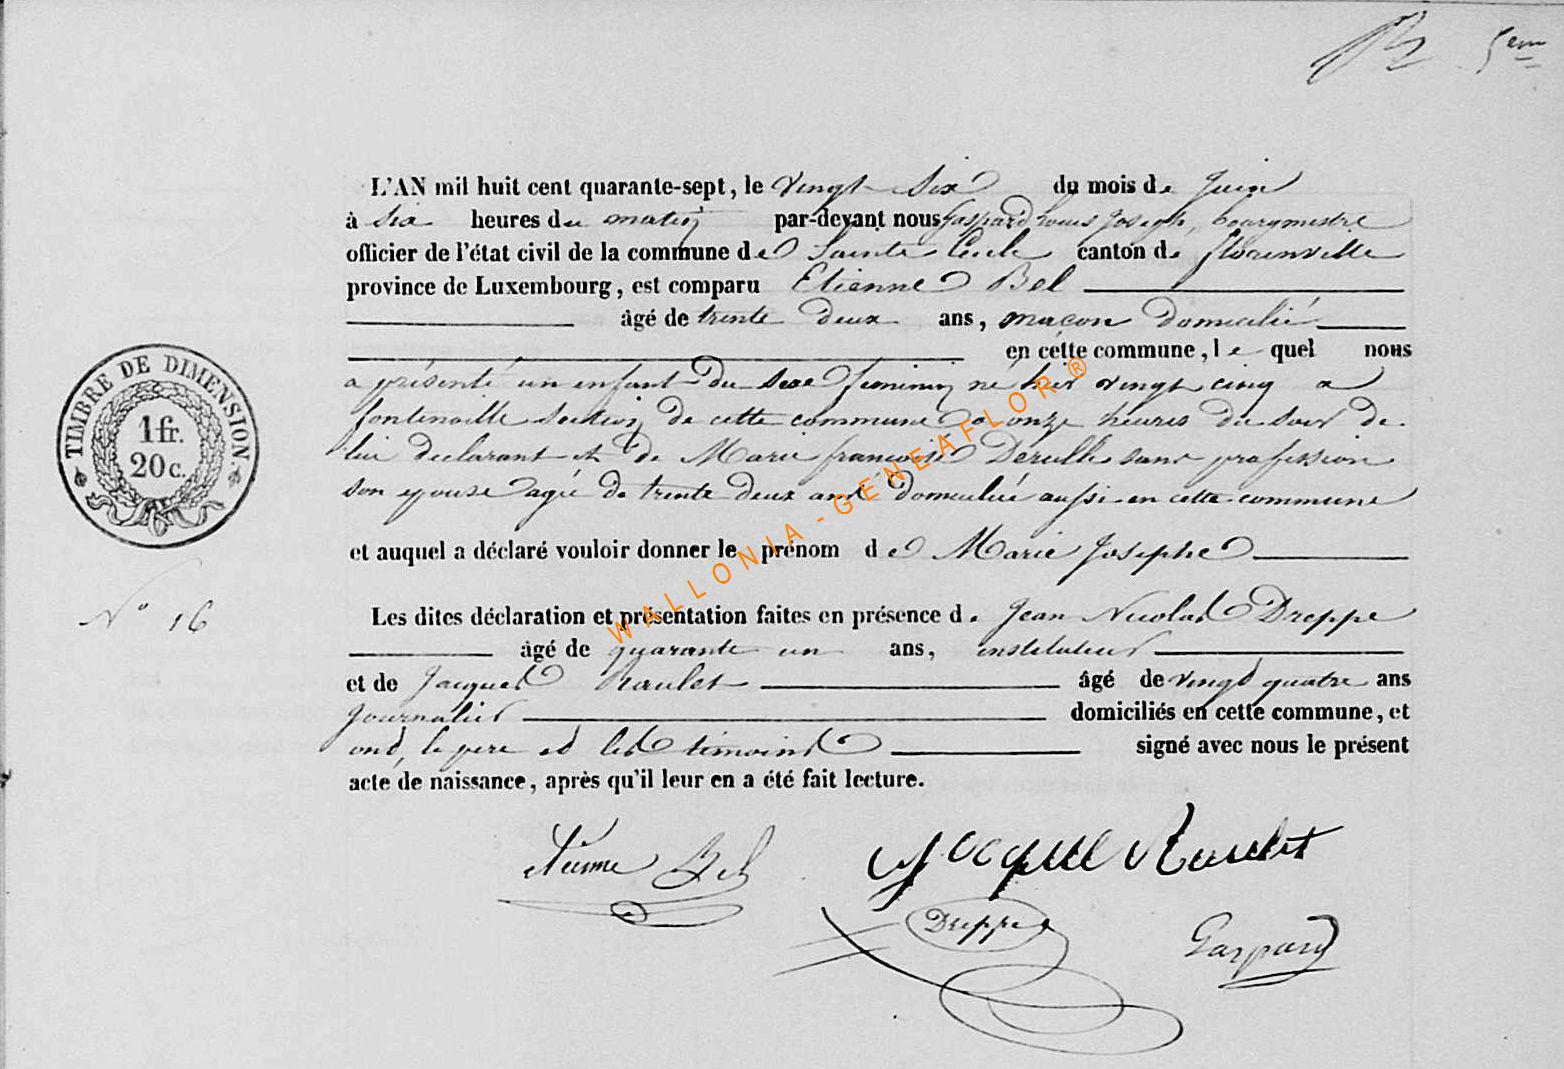 5em
L'AN mil huit cent quarante-sept, le vingt six du mois de juin
à six heures du matin par-devant nous Gaspard Louis Joseph, bourgmestre
officier de l'état civil de la commune de Sainte Cecile canton de florenville
province de Luxembourg, est comparu Etienne Bel
âgé de trente deux ans, maçon domicilié
en cette commune, le quel nous
a présenté un enfant du sexe feminin né hier vingt cinq a
fontenoille section de cette commune a onze heures du soir de
lui declarant et de Marie françoise Derulle sans profession
son epouse agée de trente deux ans domiciliée aussi en cette commune
et auquel a déclaré vouloir donner le prénom de Marie Josephe
Les dites déclaration et présentation faites en présence de Jean Nicolas Dreppe
âgé de quarante un ans, instituteur
et de Jacques Raulet âgé de vingt quatre ans
journalier domiciliés en cette commune, et
ont, le pere et les témoins signé avec nous le présent
acte de naissance, après qu'il leur en a été fait lecture.
TIMBRE DE DIMENSION.
1 fr.
20 c.
N° 16
Etienne Bel
Jacque Raulet
Dreppe
Gaspard
WALLONIA - GENEAFLOR ®